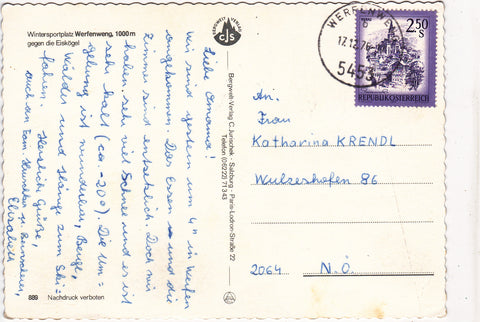 Wintersportplatz Werfenweng, 1000 m
gegen die Eiskögel
Liebe Omama!
Wir sind gestern um 4h in Werfen
angekommen. Das Essen und die
Zimmer sind entsetzlich. Doch wir
haben sehr viel Schnee und es ist
sehr kalt (ca -20°). Die Um=
gebung ist wunderbar, Berge,
Wälder und Hänge zum Ski=
fahren. Herzlich Grüße,
auch an
Elisabeth
889 Nachdruck verboten
BERGWELT VERLAG
CJS
Bergwelt-Verlag C. Jurischek · Salzburg · Paris-Lodron-Straße 22
Telefon (0 62 22) 71 3 43
WERFENWENG
17.12.76
5453
2.50
S
REPUBLIK ÖSTERREICH
An.
Frau
Katharina KRENDL
Wulzeshofen 86
2064 N.Ö.